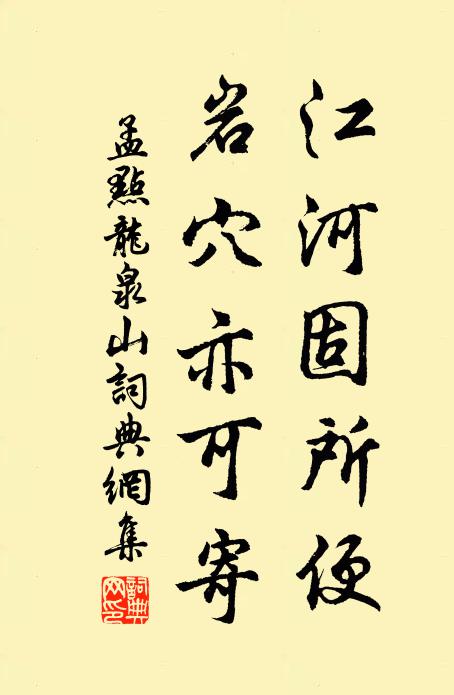 江河固所便
岩穴亦可寄
孟點龍泉山詞典網集
詞典網印